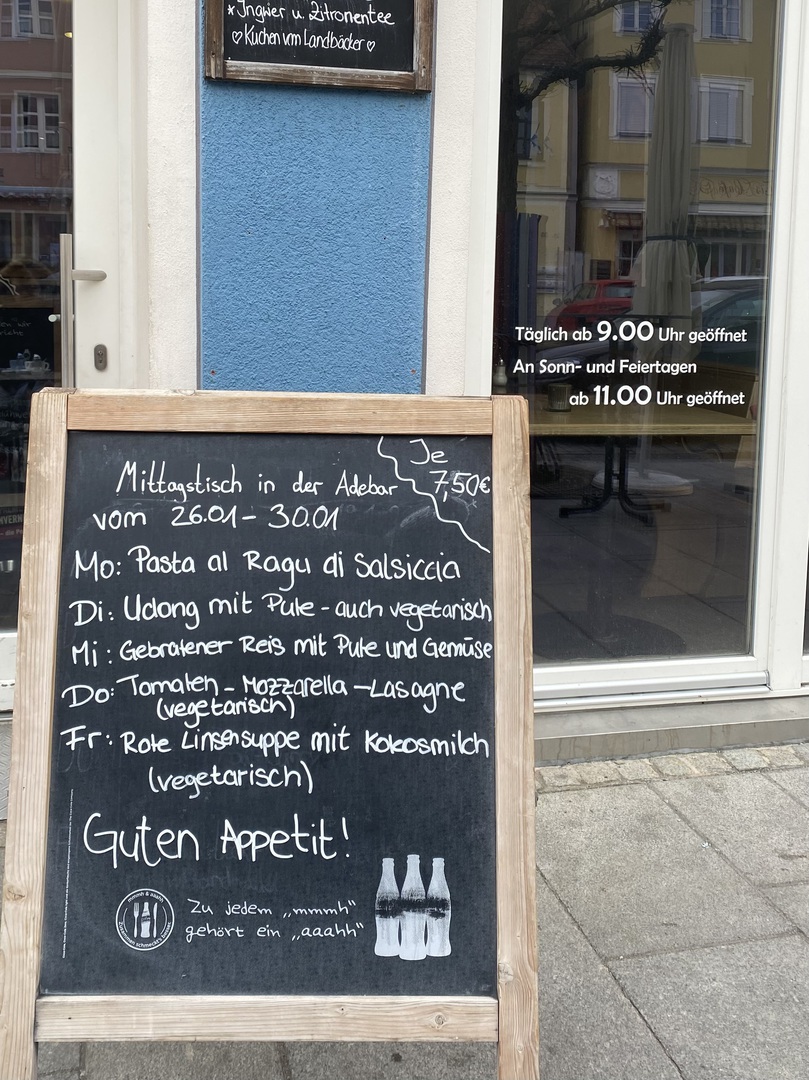 *Ingwer u. Zitronentee
♡Kuchen vom Landbäcker♡
Täglich ab 9.00 Uhr geöffnet
An Sonn- und Feiertagen
ab 11.00 Uhr geöffnet
Je
7,50€
Mittagstisch in der Adebar
vom 26.01 - 30.01
Mo: Pasta al Ragu di Salsiccia
Di: Udong mit Pute - auch vegetarisch
Mi: Gebratener Reis mit Pute und Gemüse
Do: Tomaten - Mozzarella - Lasagne
(vegetarisch)
Fr: Rote Linsensuppe mit Kokosmilch
(vegetarisch)
Guten Appetit!
mmmh & aaahh
Zu jedem „mmmh“
gehört ein „aaahh“